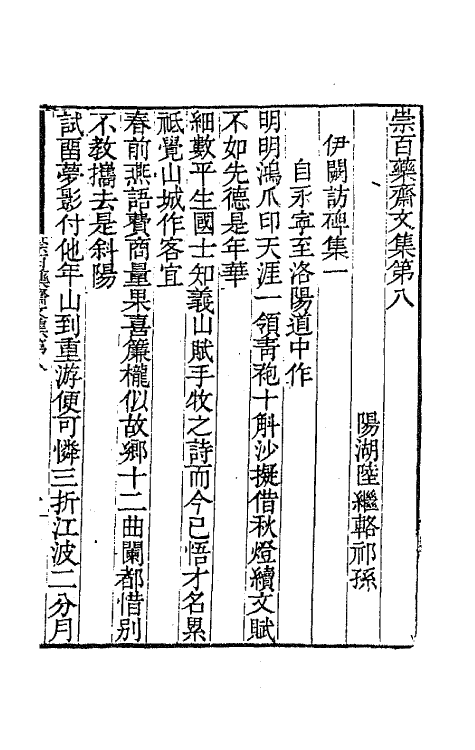 崇百藥齋文集第八
陽湖陸繼輅祁孫
伊闕訪碑集一
自永寧至洛陽道中作
明明鴻爪印天涯一領靑袍十斛沙擬借秋燈續文賦
不如先德是年華
細數平生國士知義山賦手牧之詩而今已悟才名累
祗覺山城作客宜
春前燕語費商量果喜簾櫳似故鄉十二曲闌都惜別
不教攜去是斜陽
試畱夢影付他年山到重游便可憐三折江波二分月
崇百藥齋文集第八